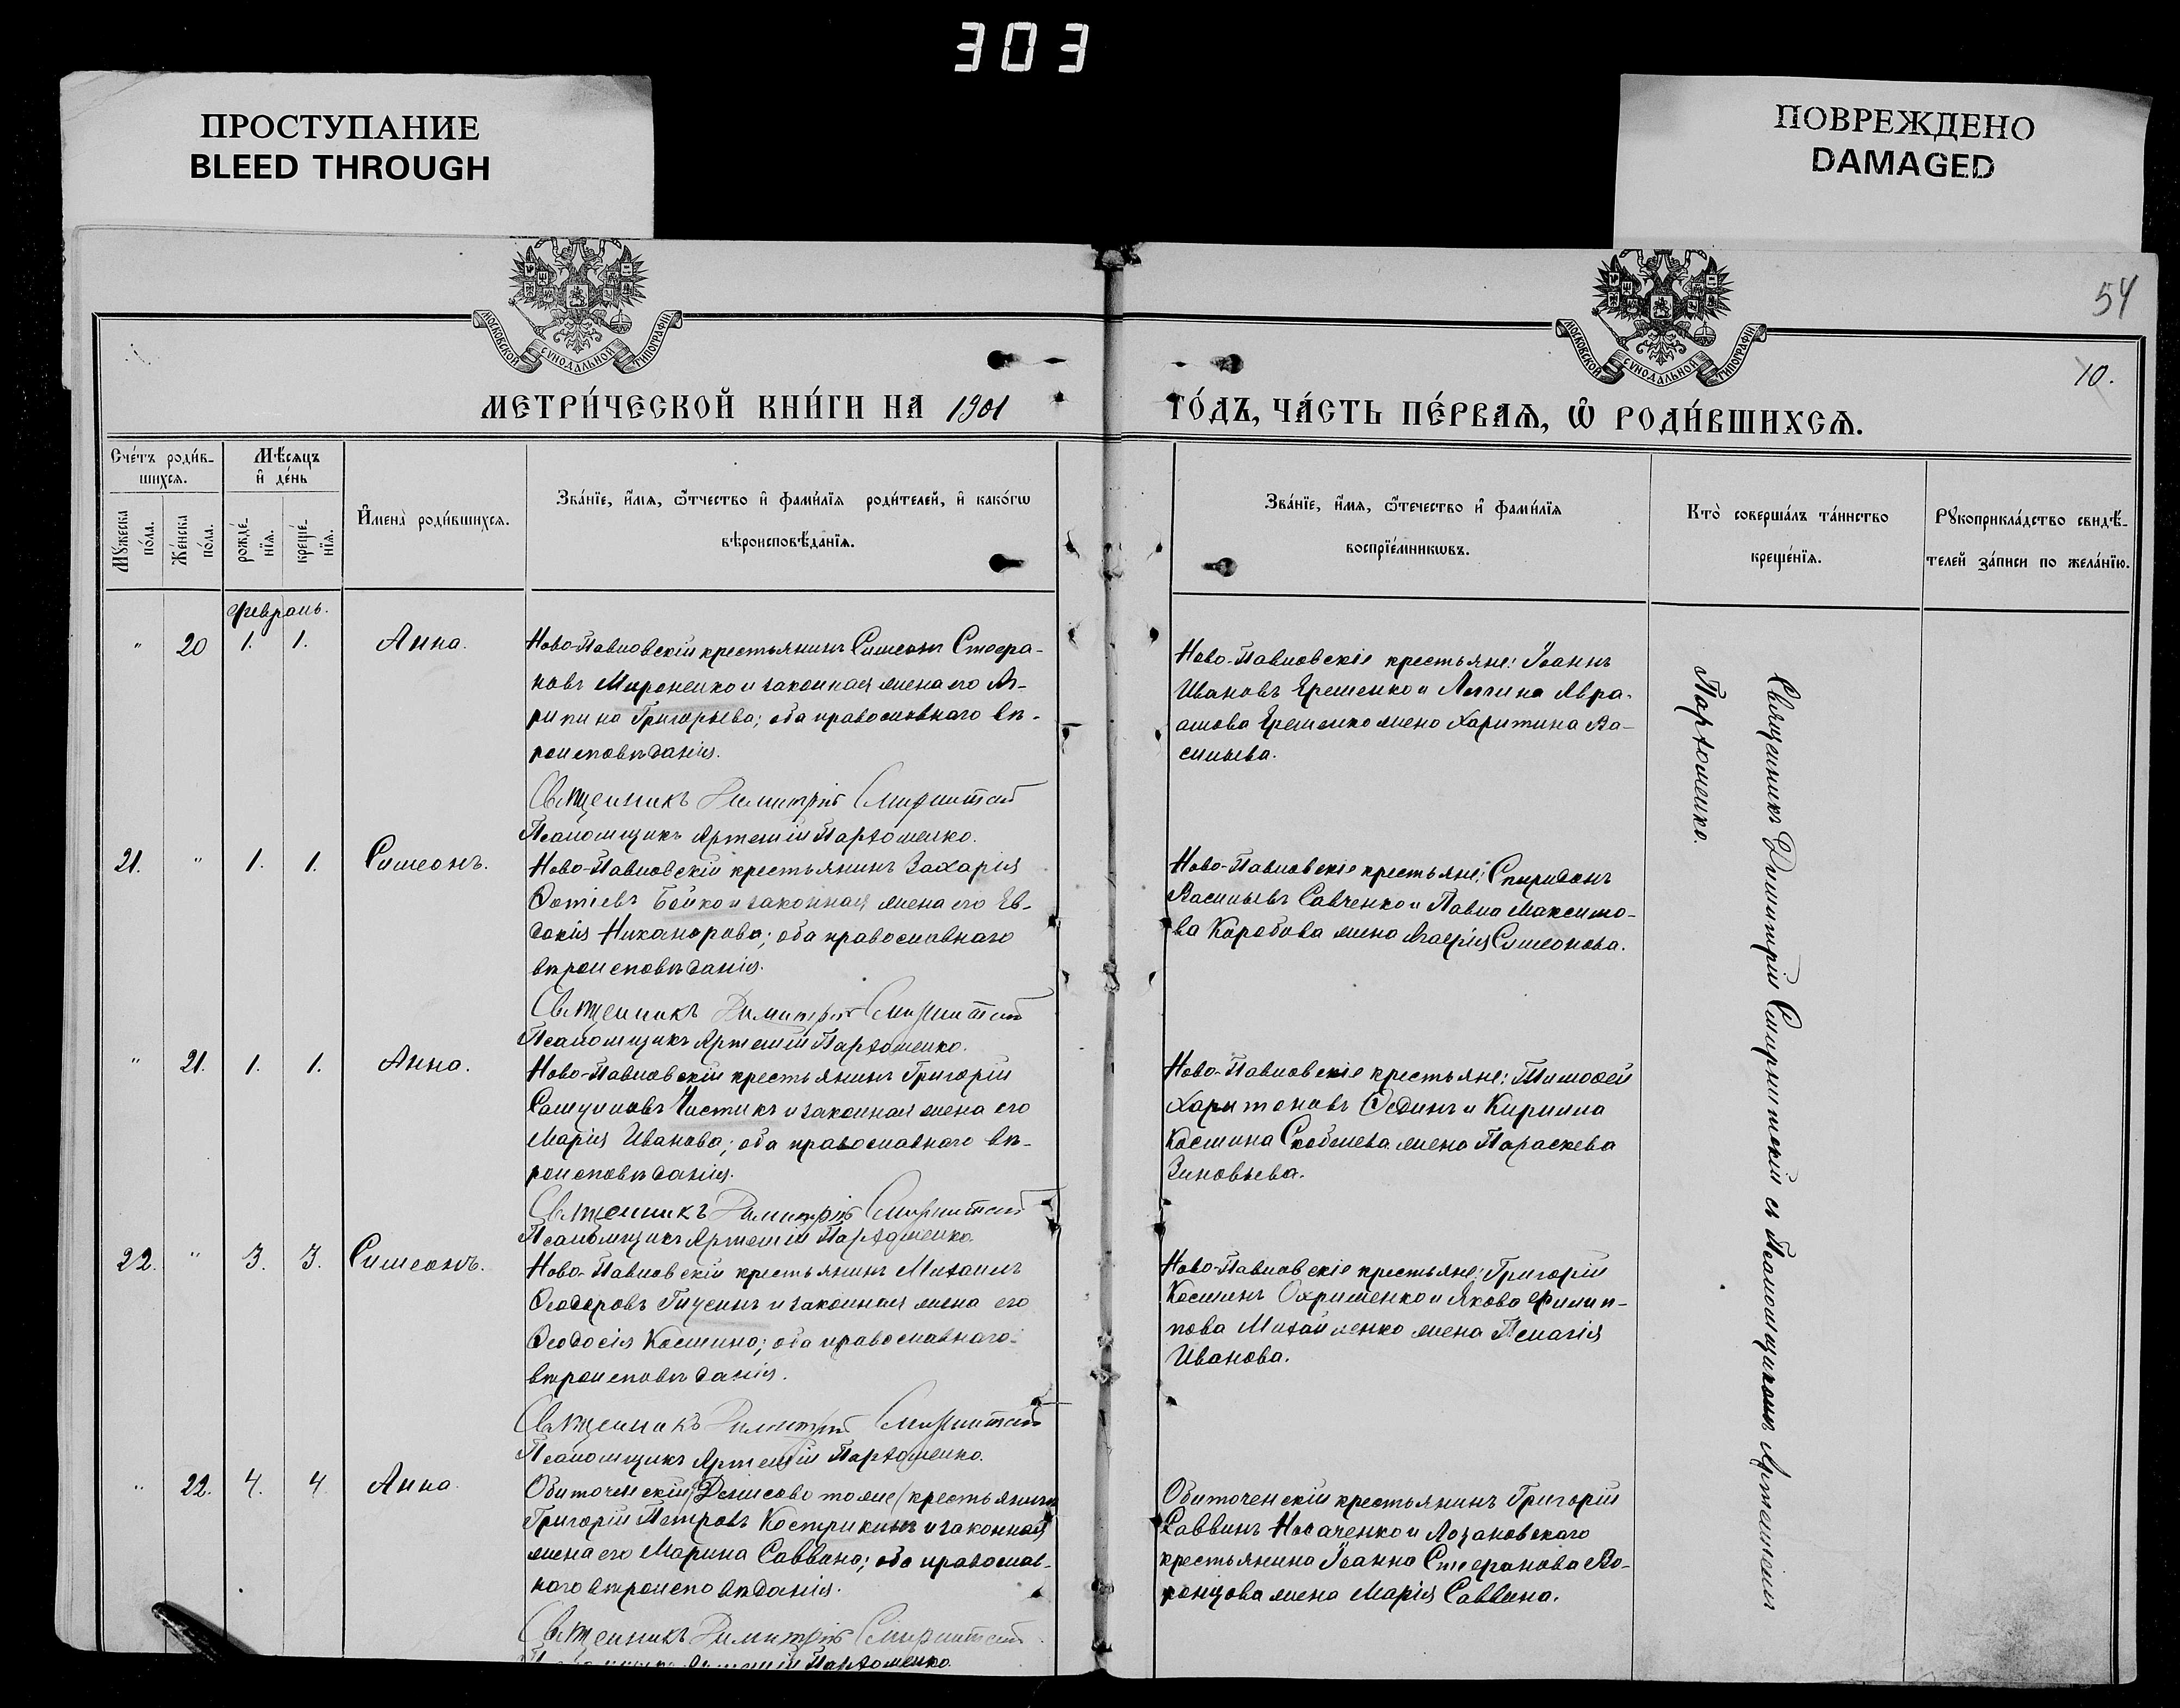 303
ПРОСТУПАНИЕ
BLEED THROUGH
ПОВРЕЖДЕНО
DAMAGED
54
10.
МОСКОВСКОЙ СѴНОДАЛЬНОЙ ТИПОГРАФІИ
МОСКОВСКОЙ СѴНОДАЛЬНОЙ ТИПОГРАФІИ
МЕТРИ́ЧЕСКОЙ КНИ́ГИ НА 1901 ГО́ДЪ, ЧА́СТЬ ПЕ́РВАѦ, Ѡ҆ РОДИ́ВШИХСѦ.
Сче́тъ роди́в-
шихся.
Мѣ́сяцъ
и҆ де́нь
Мꙋ́жеска
по́ла.
Же́нска
по́ла.
рожде́-
нїя.
креще́-
нїя.
И҆мена̀ роди́вшихся.
Зва́нїе, и҆́мя, ѻ҆́тчество и҆ фами́лїя роди́телей, и҆ како́гѡ
вѣроисповѣ́данїя.
Зва́нїе, и҆́мя, ѻ҆́течество и҆ фами́лїя
воспрїе́мникѡвъ.
Кто̀ соверша́лъ та́инство
креще́нїя.
Рꙋкоприкла́дство свидѣ́-
телей за́писи по жела́нїю.
Февраль.
" 20 1. 1. Анна.
Ново-Павловскій крестьянинъ Симеонъ Стефа-
новъ Мироненко и законная жена его Аг-
рипина Григорьева; оба православнаго вѣ-
роисповѣданія.
Священникъ Димитрій Смирнитскій
Псаломщикъ Артемій Пархоменко.
Ново-Павловскіе крестьяне: Іоаннъ
Ивановъ Ерешенко и Логгина Авра-
амова Ерешенко жена Харитина Ва-
сильева.
Священникъ Димитрій Смирнитскій съ Псаломщикомъ Артеміемъ
Пархоменко.
21. " 1. 1. Симеонъ.
Ново-Павловскій крестьянинъ Захарія
Фотіевъ Бойко и законная жена его Ев-
докія Никанорова; оба православнаго
вѣроисповѣданія.
Священникъ Димитрій Смирнитскій
Псаломщикъ Артемій Пархоменко.
Ново-Павловскіе крестьяне: Спиридонъ
Васильевъ Савченко и Павла Максимо-
ва Коробова жена Агафія Симеонова.
" 21. 1. 1. Анна.
Ново-Павловскій крестьянинъ Григорій
Самуиловъ Чистикъ и законная жена его
Марія Иванова; оба православнаго вѣ-
роисповѣданія.
Священникъ Димитрій Смирнитскій
Псаломщикъ Артемій Пархоменко.
Ново-Павловскіе крестьяне: Тимофей
Харитоновъ Фединъ и Кирилла
Космина Скобелева жена Параскева
Зиновьева.
22. " 3. 3. Симеонъ.
Ново-Павловскій крестьянинъ Михаилъ
Феодоровъ и законная жена его
Феодосія Космина; оба православнаго
вѣроисповѣданія.
Священникъ Димитрій Смирнитскій
Псаломщикъ Артемій Пархоменко.
Ново-Павловскіе крестьяне: Григорій
Косминъ Охрименко и Якова Филип-
пова Михайленко жена Пелагія
Иванова.
" 22. 4. 4 Анна.
Обиточенскій (Денисово тоже) крестьянинъ
Григорій Петровъ Кострикинъ и законная
жена его Марина Саввина; оба православ-
наго вѣроисповѣданія.
Священникъ Димитрій Смирнитскій
Псаломщикъ Артемій Пархоменко.
Обиточенскій крестьянинъ Григорій
Саввинъ Носаченко и Лозановского
крестьянина Іоанна Стефанова Во-
ронцова жена Марія Саввина.